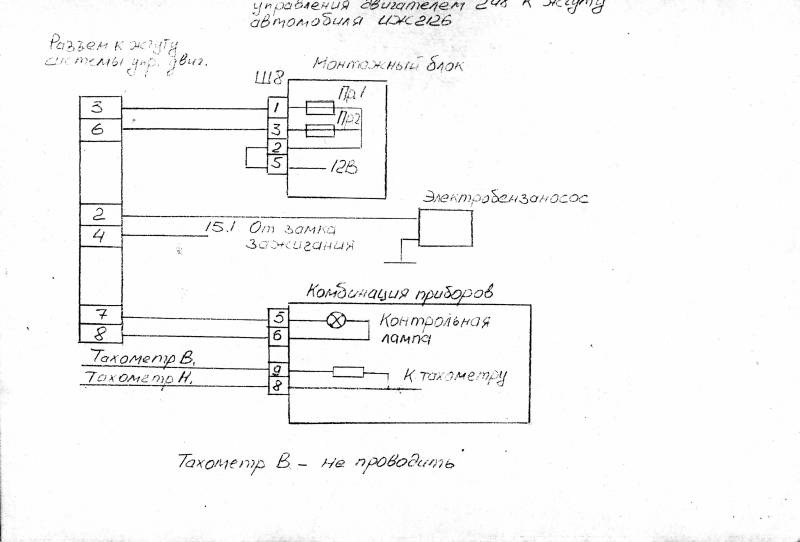 управления двигателем к жгуту
автомобиля ИЖ2126
Разъем к жгуту
системы упр. двиг.
Монтажный блок
Ш8
3
6
1
3
2
5
Пр1
Пр2
12В
2
4
15.1 От замка
зажигания
Электробензаносос
Комбинация приборов
7
8
5
6
9
8
Контрольная
лампа
Тахометр В.
Тахометр Н.
К тахометру
Тахометр В. - не проводить